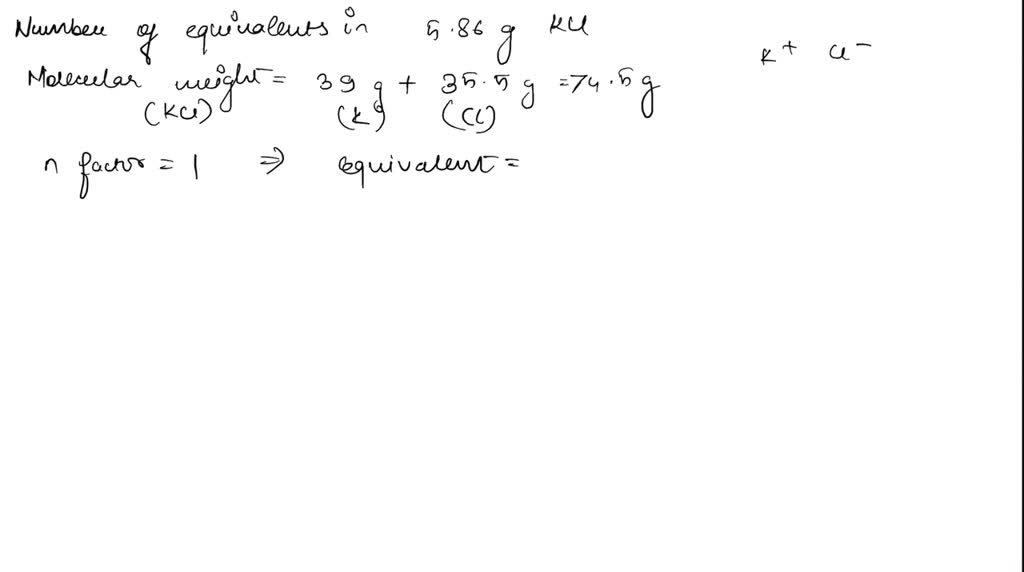 Number of equivalents in 5.86 g KCl
K+ Cl-
Molecular weight = 39 g + 35.5 g = 74.5 g
(KCl) (K) (Cl)
n factor = 1 ⇒ equivalent =